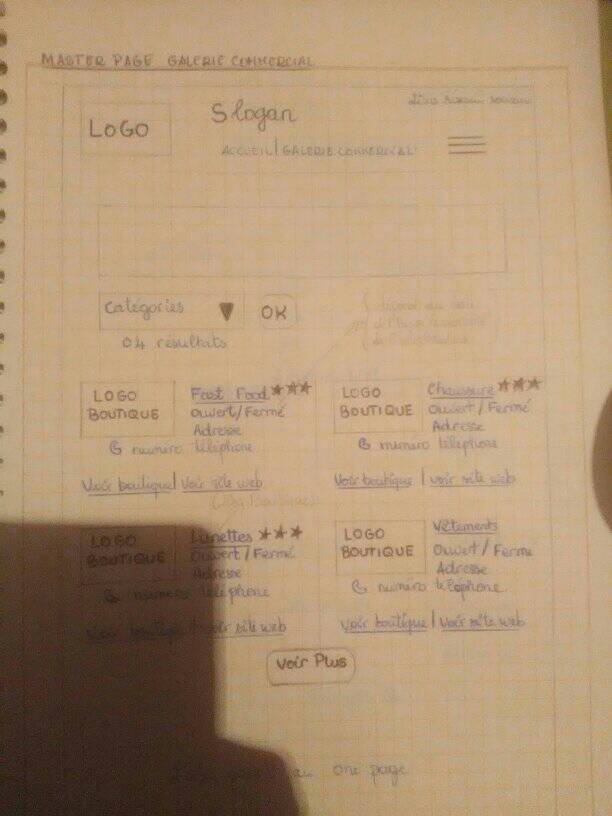 MASTER PAGE GALERIE COMMERCIAL
LOGO
Slogan
ACCUEIL | GALERIE COMMERCIAL
Catégories
OK
04 résultats
LOGO BOUTIQUE
Fast Food ★★★
Ouvert/Fermé
Adresse
numéro téléphone
Voir boutique | Voir site web
LOGO BOUTIQUE
Chaussure ★★★
Ouvert/Fermé
Adresse
numéro téléphone
Voir boutique | voir site web
LOGO BOUTIQUE
Lunettes ★★★
Ouvert/Fermé
Adresse
numéro téléphone
Voir boutique | voir site web
LOGO BOUTIQUE
Vêtements
Ouvert/Fermé
Adresse
numéro téléphone
Voir boutique | Voir site web
Voir Plus
one page